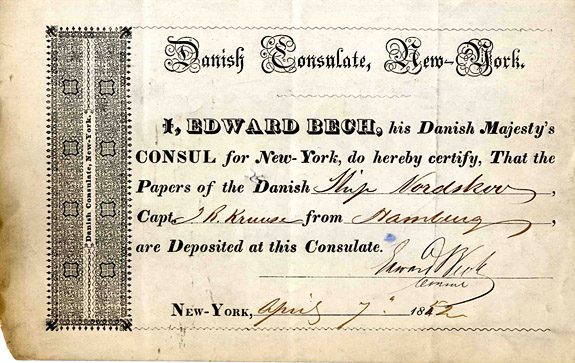 Danish Consulate, New-York.
Danish Consulate, New-York.
I, EDWARD BECH, his Danish Majesty's
CONSUL for New-York, do hereby certify, That the
Papers of the Danish Ship Nordskov,
Capt. J. R. Kruuse from Hamburg,
are Deposited at this Consulate.
Edward Bech
Consul
NEW-YORK, April 7. 1852